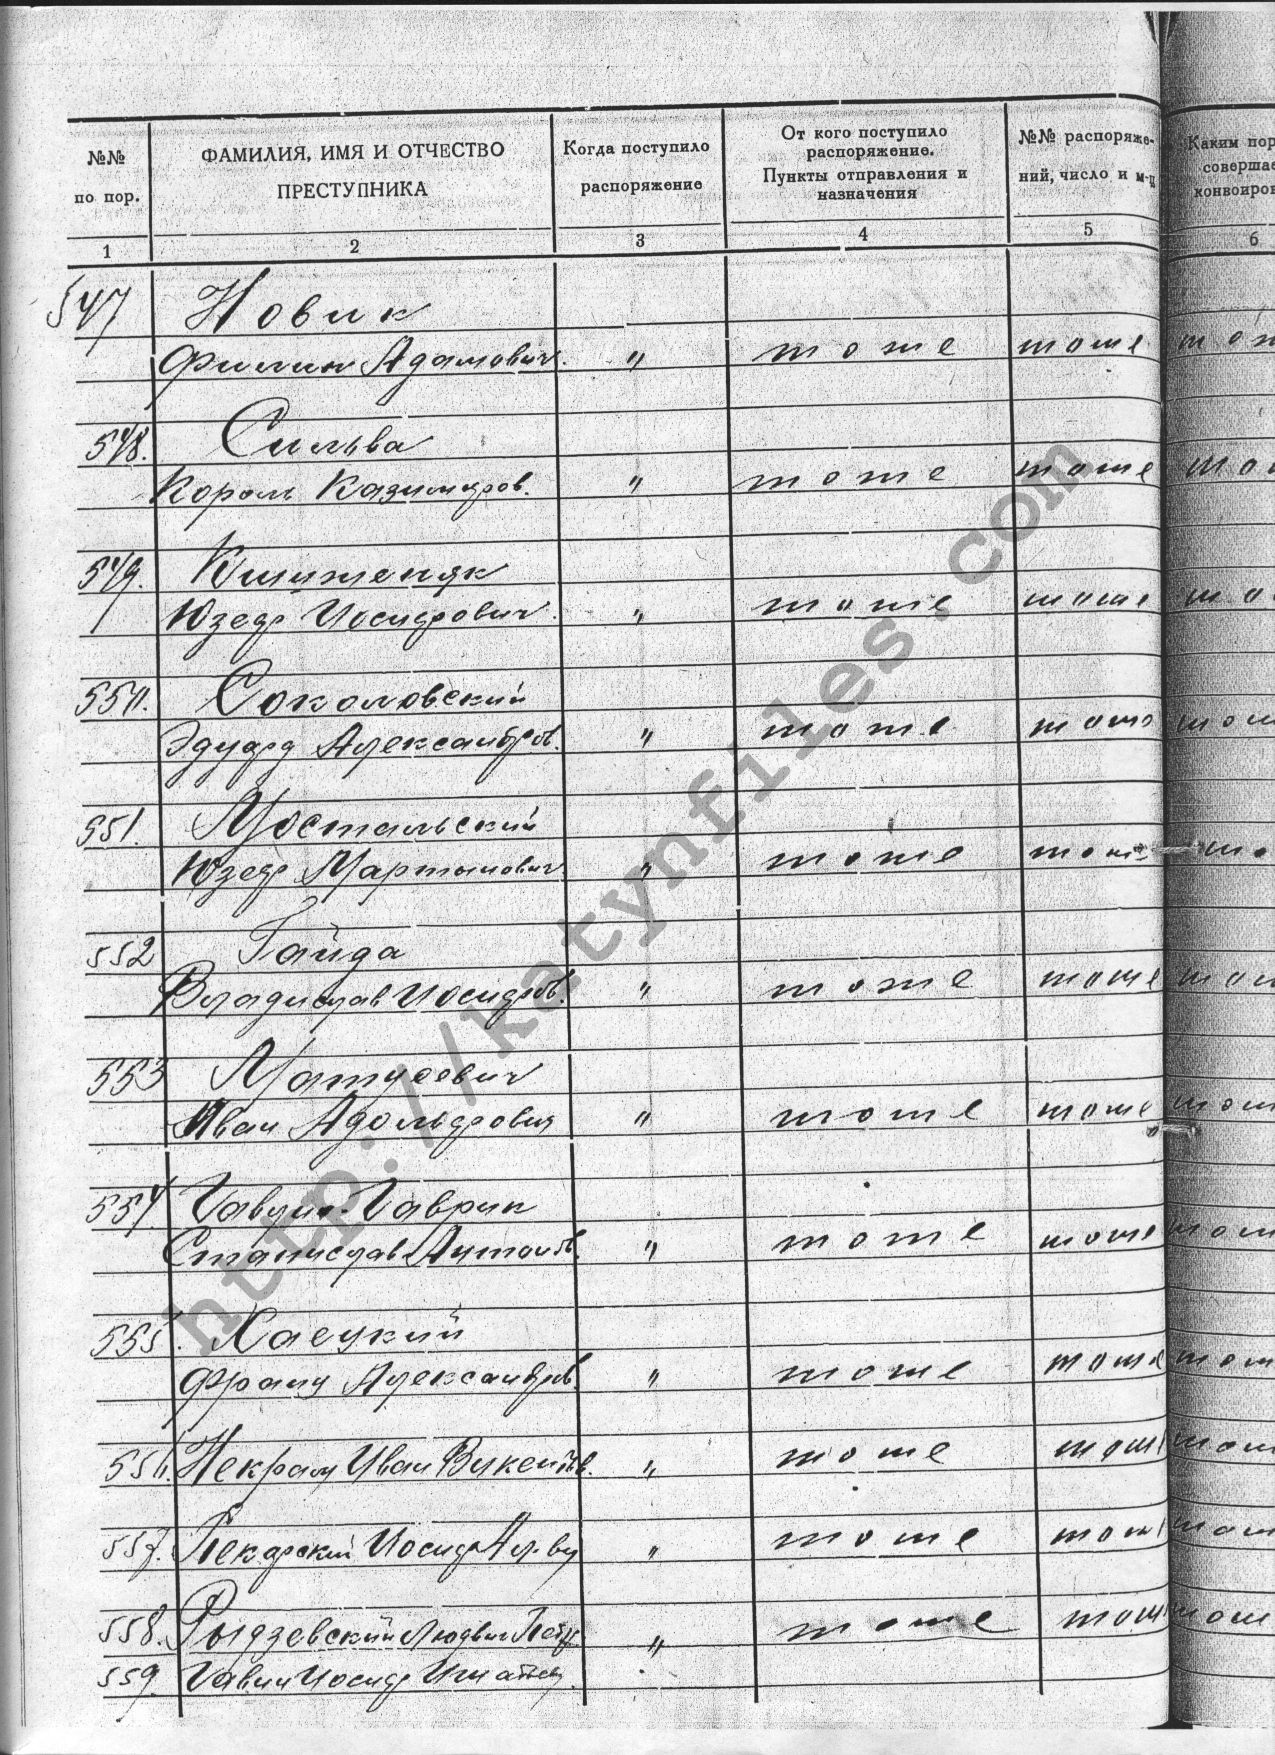 №№
по пор.
ФАМИЛИЯ, ИМЯ И ОТЧЕСТВО
ПРЕСТУПНИКА
Когда поступило
распоряжение
От кого поступило
распоряжение.
Пункты отправления и
назначения
№№ распоряже-
ний, число и м-ц
Каким пор
совершае
конвоиров
1 2 3 4 5 6
547 Новик
Филип Адамович. " тоже тоже тож
548. Сильва
Король Казимиров. " тоже тоже тож
549. Кшиженяк
Юзеф Иосифович. " тоже тоже то
550. Соколовский
Эдуард Александров. " тоже тоже тож
551. Мостальский
Юзеф Мартынович. " тоже тоже то
552 Гайда
Владислав Иосифов. " тоже тоже тож
553 Матусевич
Иван Адольфович " тоже тоже тож
554. Гаврин-Гаврик
Станислав Антонов. " тоже тоже тож
555. Хаецкий
Франц Александров. " тоже тоже тож
556. Некраш Иван Викентьев. " тоже тоже тож
557. Пекарский Иосиф Ал-ви " тоже тоже тож
558. Рыдзевский Людвиг Петр " тоже тоже тож
559. Гавин Иосиф Игнатьев
http://katynfiles.com